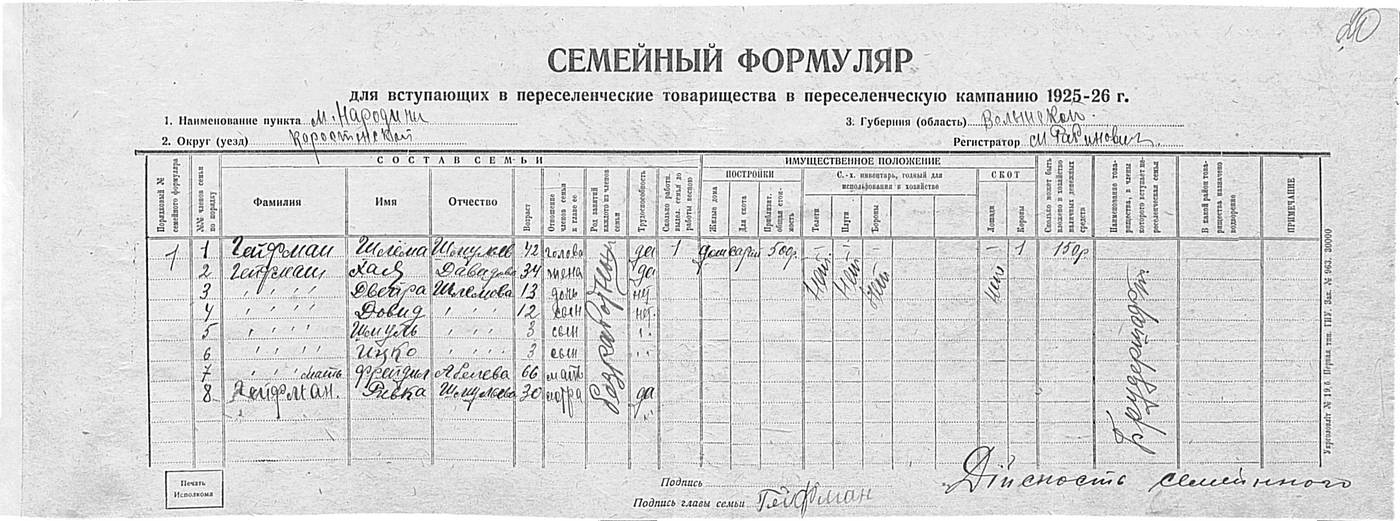 20
СЕМЕЙНЫЙ ФОРМУЛЯР
для вступающих в переселенческие товарищества в переселенческую кампанию 1925-26 г.
1. Наименование пункта м. Народичи
3. Губерния (область) Волынской
2. Округ (уезд) Коростенской
Регистратор
СОСТАВ СЕМЬИ
ИМУЩЕСТВЕННОЕ ПОЛОЖЕНИЕ
Порядковый № семейного формуляра
№№ членов семьи по порядку
Фамилия
Имя
Отчество
Возраст
Отношение членов семьи к главе ее
Род занятий каждого из членов семьи
Трудоспособность
Сколько работн. выдел. семья до работы весною
ПОСТРОЙКИ
Жилые дома
Для скота
Приблизит. общая стоимость
С.-х. инвентарь, годный для использования в хозяйстве
Телеги
Плуги
Бороны
СКОТ
Лошади
Коровы
Сколько может быть вложено в хозяйство наличных денежных средств
Наименование товарищества, в члены которого вступает переселенческая семья
В какой район товарищества назначено водворение
ПРИМЕЧАНИЕ
1 1 Гейфман Шлема Шмулев 42 голова да 1 дом сарай 500р. 1 150р
2 Гейфман Хая Давидова 34 жена да
3 " " " " Двейра Шлемова 13 дочь нет
4 " " " " Довид " " " 12 сын нет
5 " " " " Шмуль " " " 3 сын "
6 " " " " Ицко " " " 3 сын "
7 " " " мать Фрейдл Абелева 66 мать
8 Гейфман. Ривка Шмулева 30 сестра да
нет
нет
нет
нет
Печать Исполкома
Подпись
Подпись главы семьи Гейфман
Дійсность семейнного